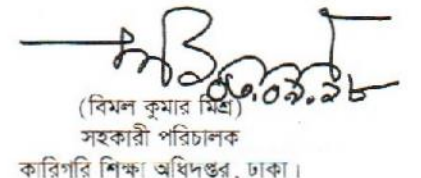 ০৩.০৯.২৮
(বিমল কুমার মিশ্র)
সহকারী পরিচালক
কারিগরি শিক্ষা অধিদপ্তর, ঢাকা।